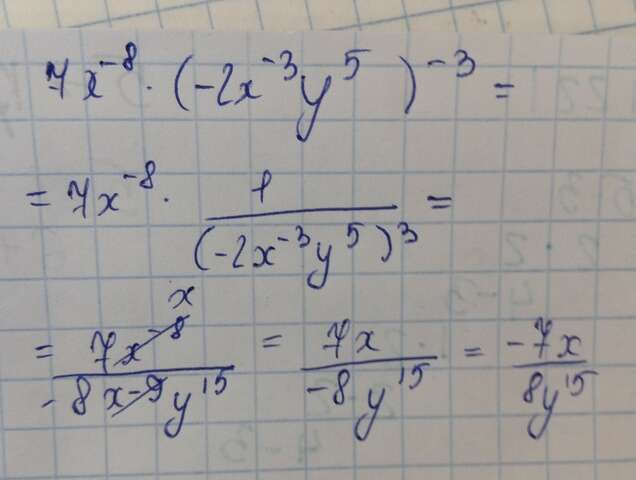 7x⁻⁸ · (-2x⁻³y⁵)⁻³ =
= 7x⁻⁸ · 1/(-2x⁻³y⁵)³ =
= 7x⁻⁸/-8x⁻⁹y¹⁵ x = 7x/-8y¹⁵ = -7x/8y¹⁵